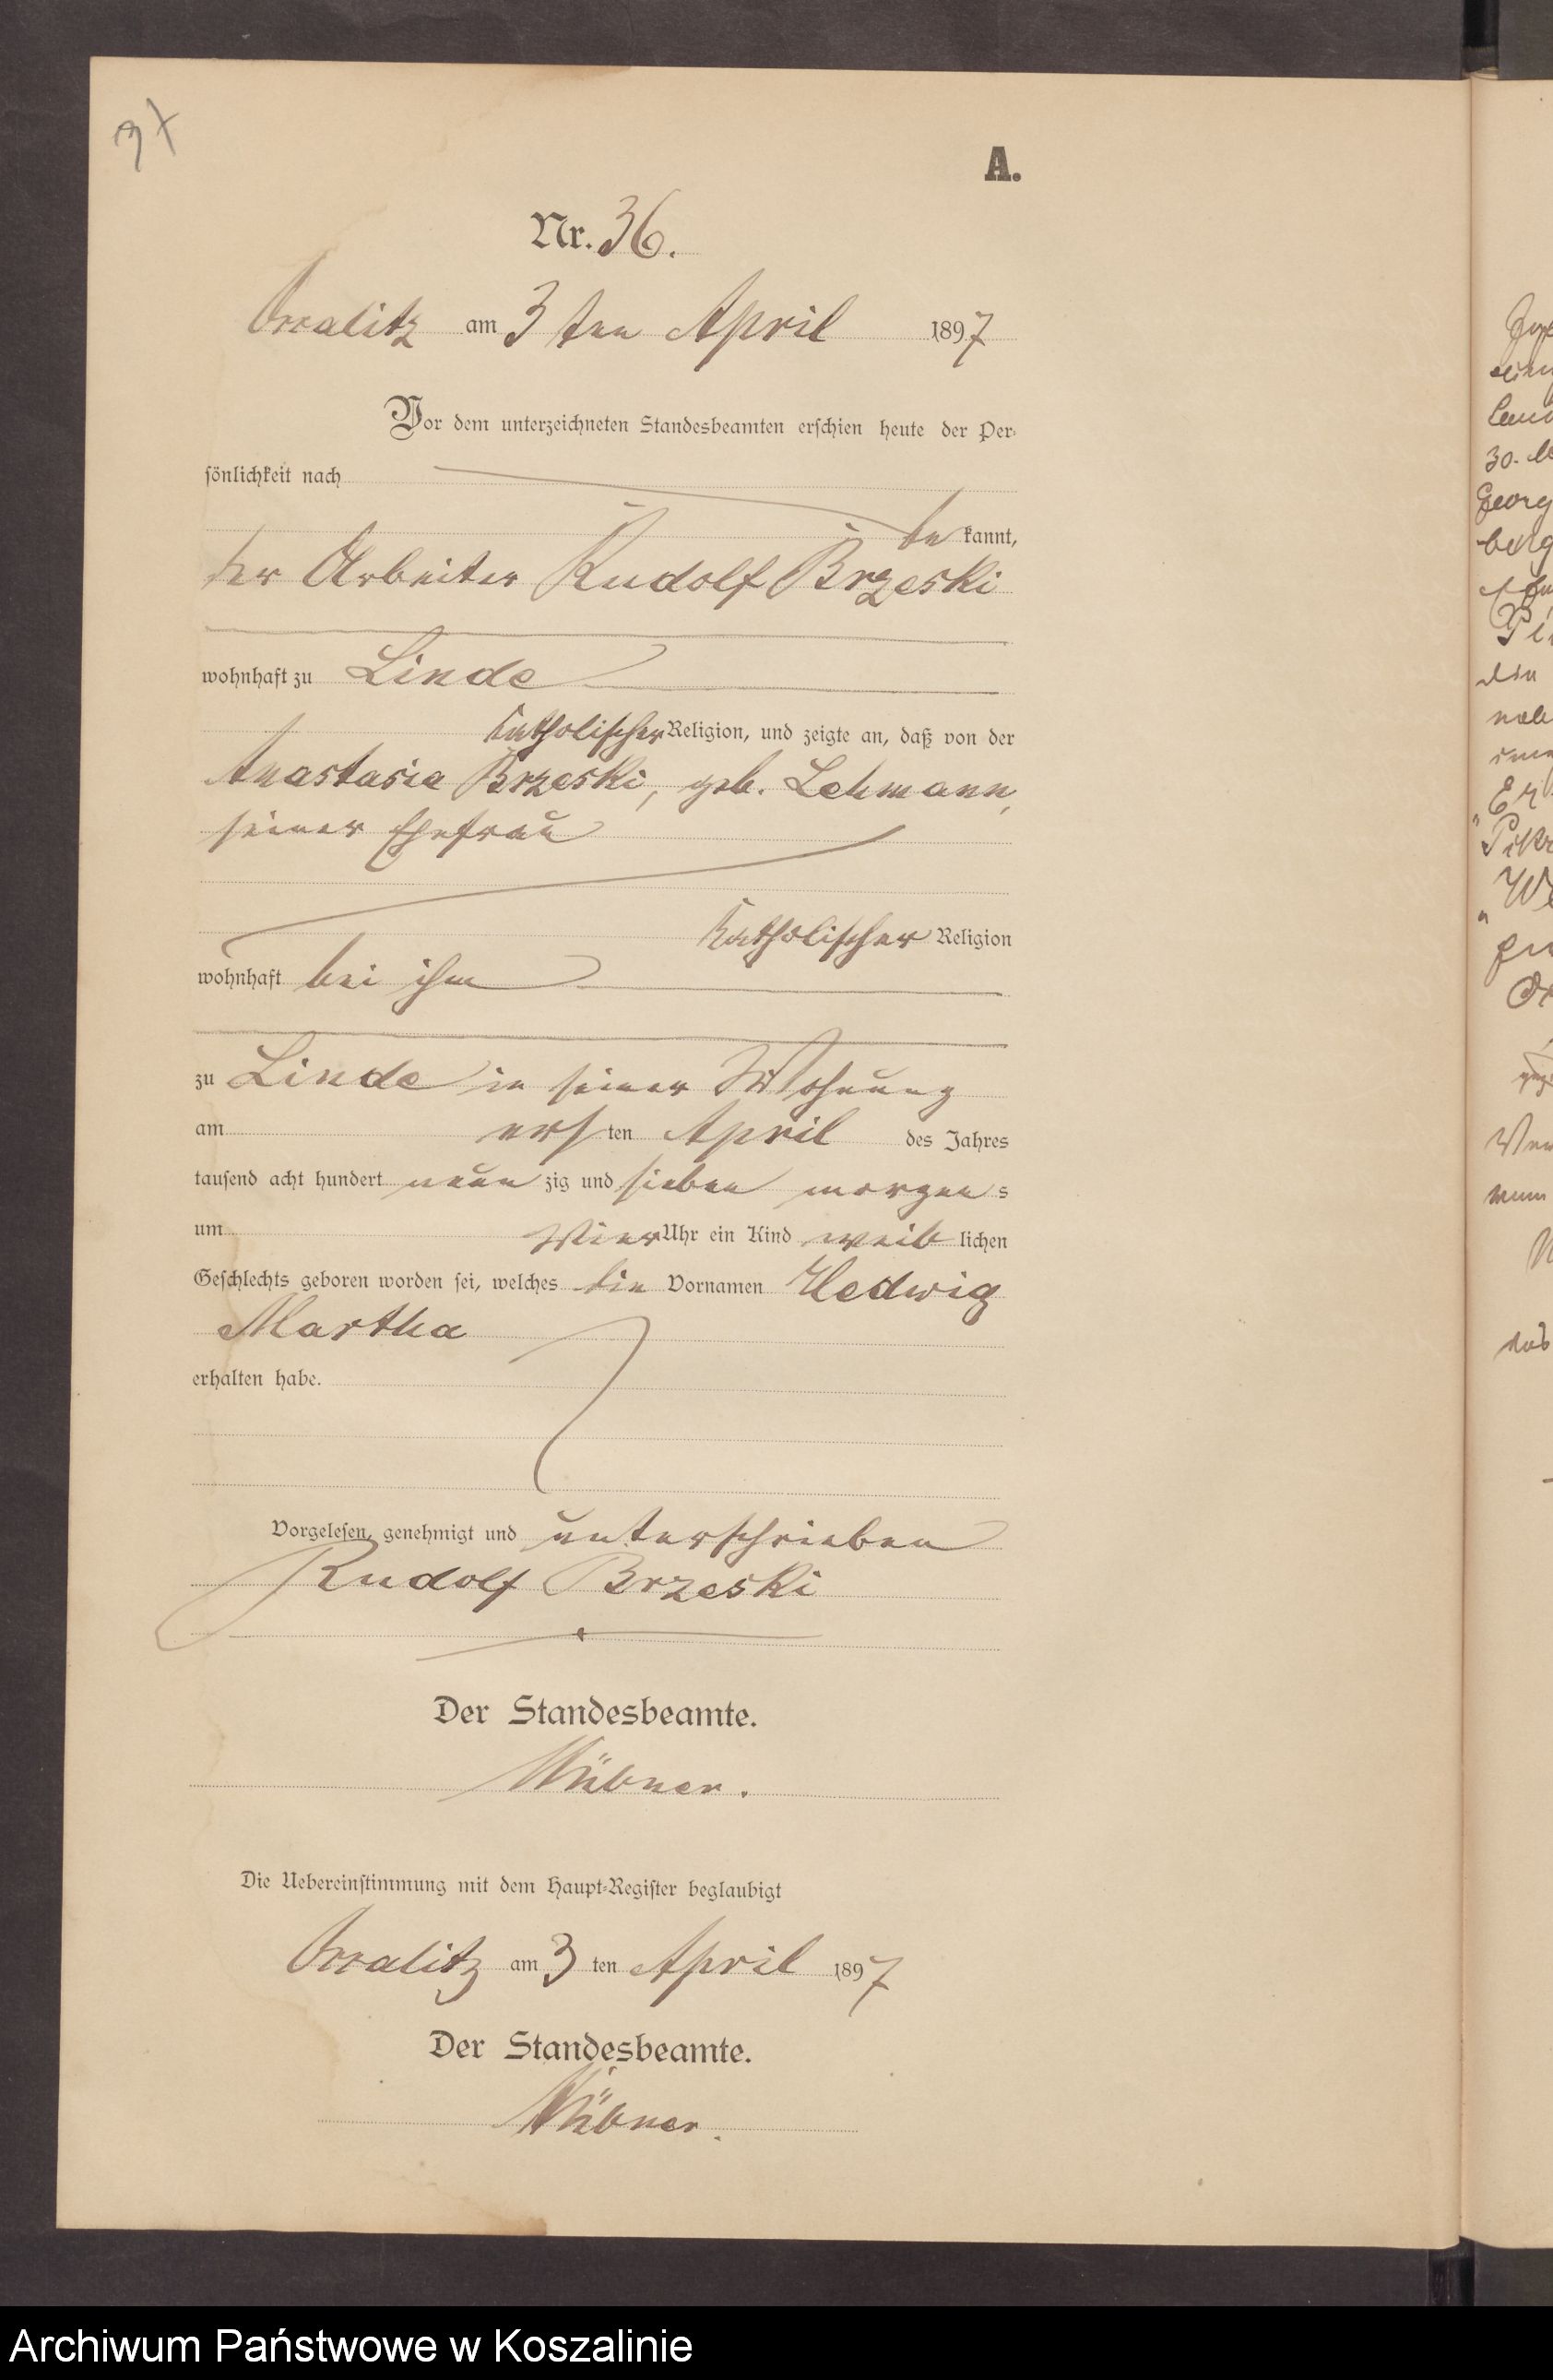 37
A.
Nr. 36.
am 3ten April 1897
Vor dem unterzeichneten Standesbeamten erschien heute der Per-
sönlichkeit nach
be kannt,
der Arbeiter Rudolf Brzeski
wohnhaft zu Linde
katholischer Religion, und zeigte an, daß von der
Anastasia Brzeski, geb. Lehmann,
seiner Ehefrau
katholischer Religion
wohnhaft bei ihm
zu Linde in seiner Wohnung
am ersten April des Jahres
tausend acht hundert neunzig und sieben morgens
um vier Uhr ein Kind weiblichen
Geschlechts geboren worden sei, welches die Vornamen Hedwig
Martha
erhalten habe.
Vorgelesen, genehmigt und unterschrieben
Rudolf Brzeski
Der Standesbeamte.
Die Uebereinstimmung mit dem Haupt-Register beglaubigt
am 3ten April 1897
Der Standesbeamte.
Georg
Archiwum Państwowe w Koszalinie